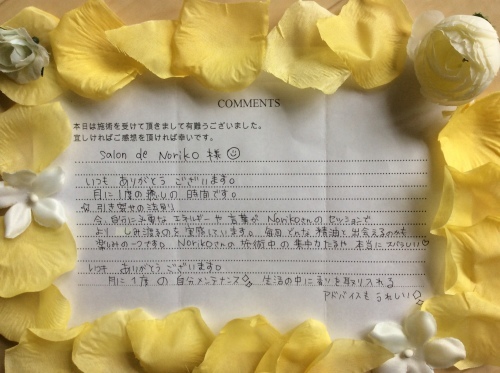 COMMENTS
本日は施術を受けて頂きまして有難うございました。
宜しければご感想を頂ければ幸いです。
Salon de Noriko 様
いつも ありがとう ございます。
月に1度の癒しの時間です。
引き寄せの法則
今、自分に必要な エネルギーや 言葉が Norikoさんの セッションで
より しみ渡るのを 実感しています。毎月 どんな 精油と出会えるのかも
楽しみの一つです。Norikoさんの 施術中の 集中力たるや 本当に スバラしい
いつも ありがとう ございます。
月に1度 の 自分メンテナンス 生活の中に香りを取り入れる
アドバイスも うれしい